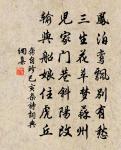 鳳泊鸞飄別有愁
三生花草夢蘇州
兒家門巷斜陽改
輸與船娘住虎丘
龔自珍己亥雜詩詞典
網集